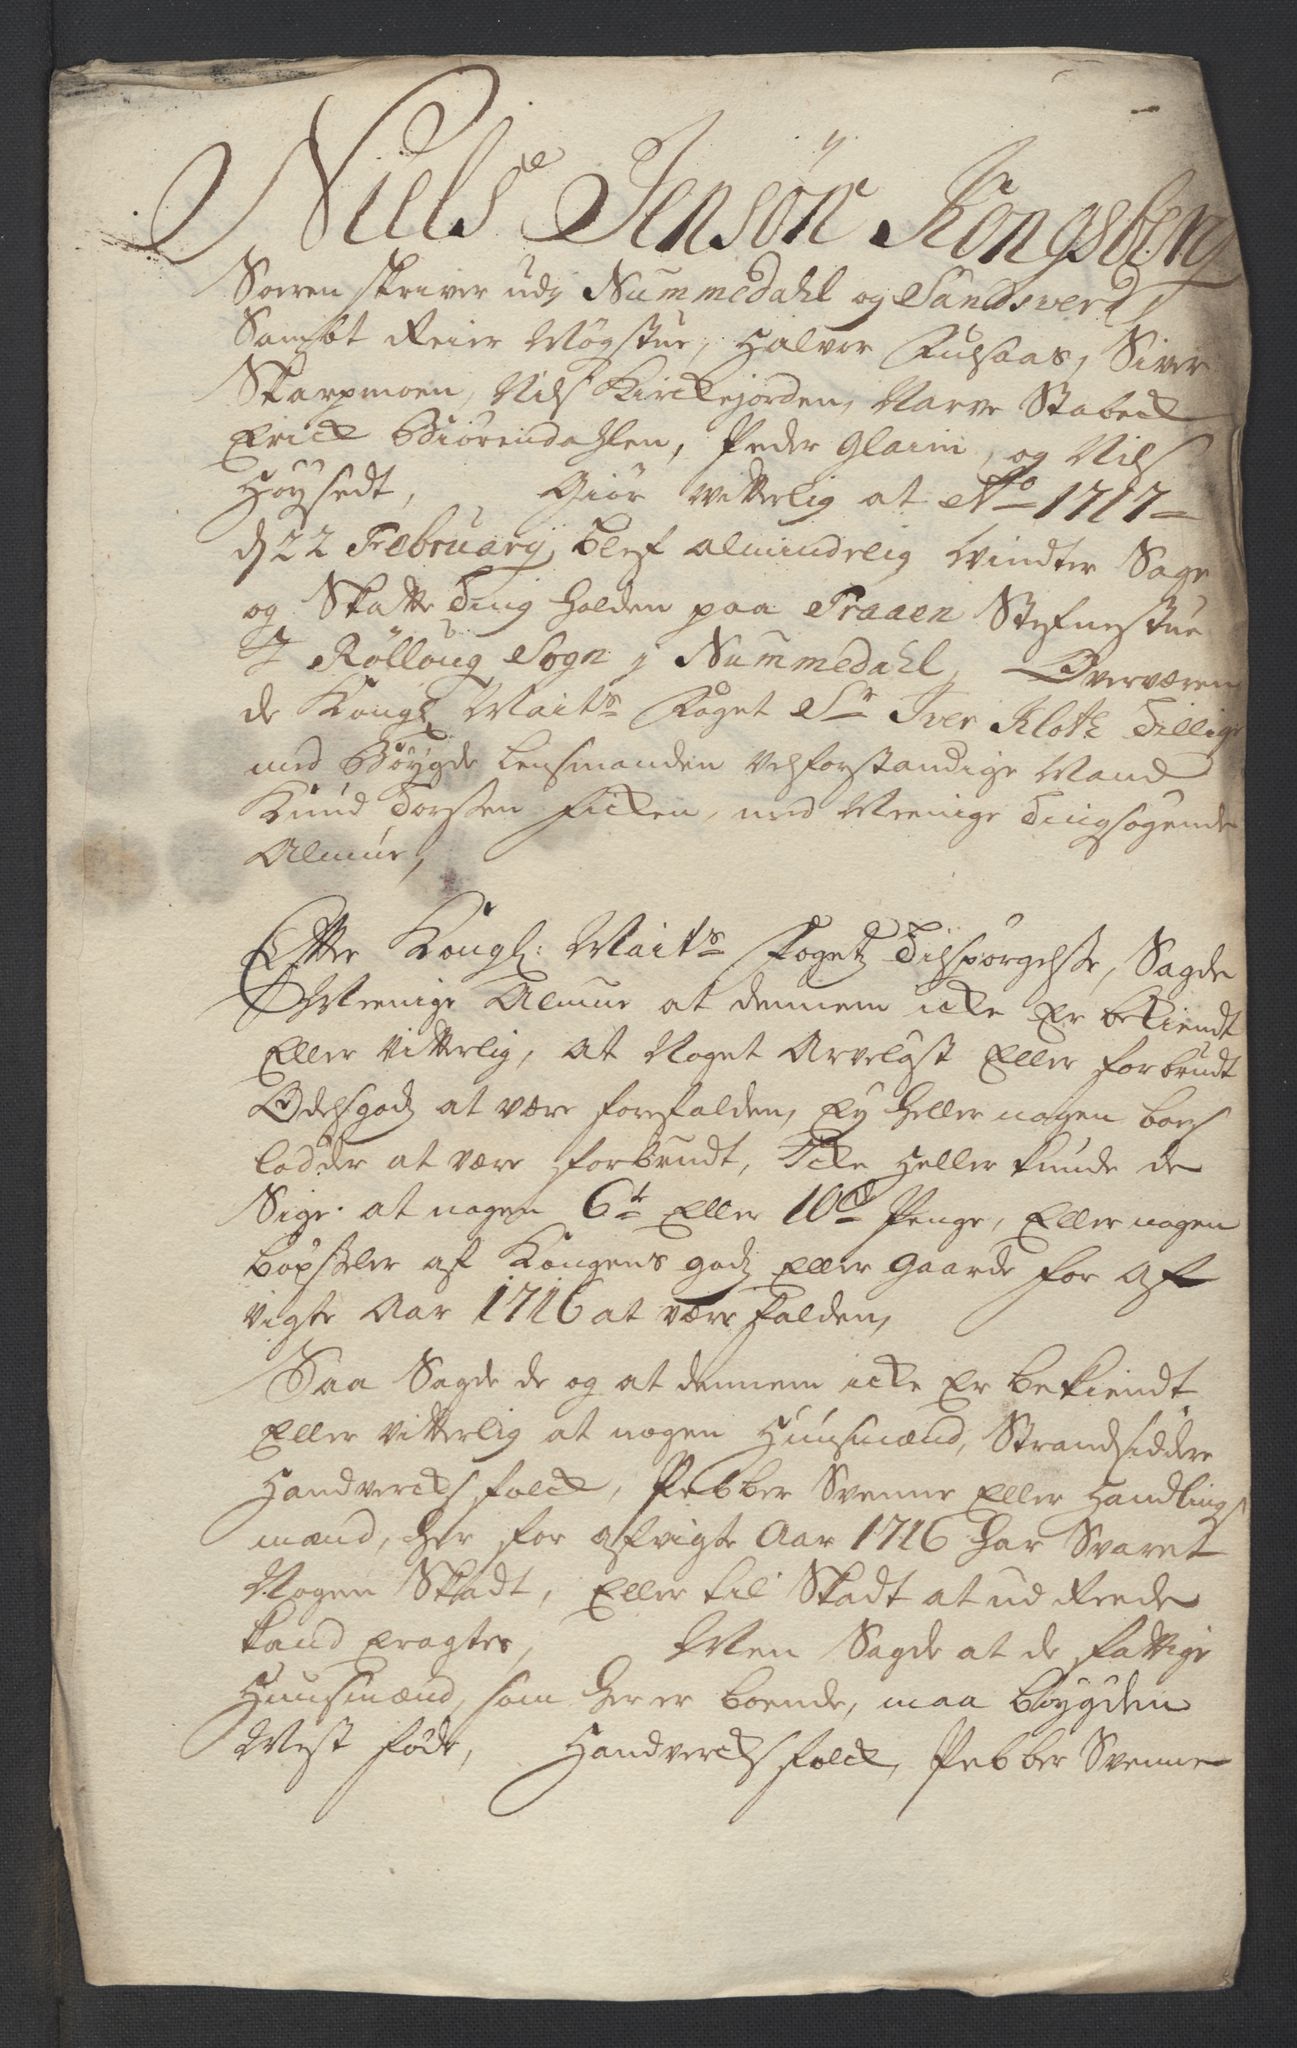 Niels Jensøn Kongsberg
Soerenskriver udj Nummedahl og Sandsverd,
Sambt Reier Møgstue, Halvor Fulsaas, Siver
Skarpmoen, Nils Kirckejorden, Narve Stabeck
Erick Biørendahlen, Peder Glaim, og Nils
Høysedt, Giør vitterlig at Ao 1717
d 22 February, blef almindelig Vindter Sage
og Skatte Ting holden paa Traaen Stefnestue
I Rolloug Sogn j Nummedahl, Overværen
de Kongl Maits Foget Sr Iver Kloth Tillige
med Bøygde Lensmanden Velforstandige Mand
Knud Torssen Ficken, med Meenige Tingsøgende
Almue,
Efter Kongl: Maits Fogetz Tilspørgelsse, Sagde
Meenige Almue at dennem icke Er bekiendt
Eller Vitterlig, at Noget Arveløst Eller forbrudt
Odelsgodz at være forefalden, Ey heller nogen boes
lodder at være forbrudt, Icke heller kunde de
Sige at nogen 6te Eller 10de Penge, Eller nogen
bøxseler af Kongens godz Eller Gaarde for af
vigte Aar 1716 at være falden,
Saa Sagde de og at dennem icke Er bekiendt
Eller Vitterlig at nogen Huusmænd, Strandsiddere
Handvercksfolck, Pebber Svenne Eller Handlings
mænd, her for afvigte Aar 1716 har Svaret
Nogen Skadt, Eller til Skadt at ud Reede
kand eragtes, Men Sagde at de fattige
Huusmænd, som her er boende, maa bøygden
Mest føde, Handvercksfolck, Pebber Svenne